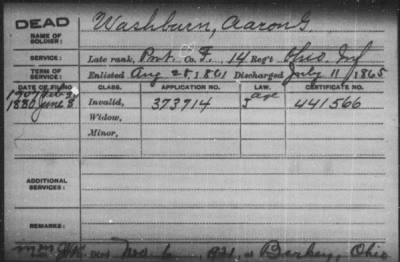 DEAD Washburn, Aaron G
NAME OF SOLDIER:
SERVICE: Late rank, Co. F, 14 Reg't Ohio Inf
TERM OF SERVICE: Enlisted Aug 28, 1861 Discharged July 11, 1865
DATE OF FILING CLASS. APPLICATION NO. LAW. CERTIFICATE NO.
1907 Feb
1880 June 8 Invalid, 373714 441566
Widow,
Minor,
ADDITIONAL SERVICES:
REMARKS:
Died at Berkey, Ohio